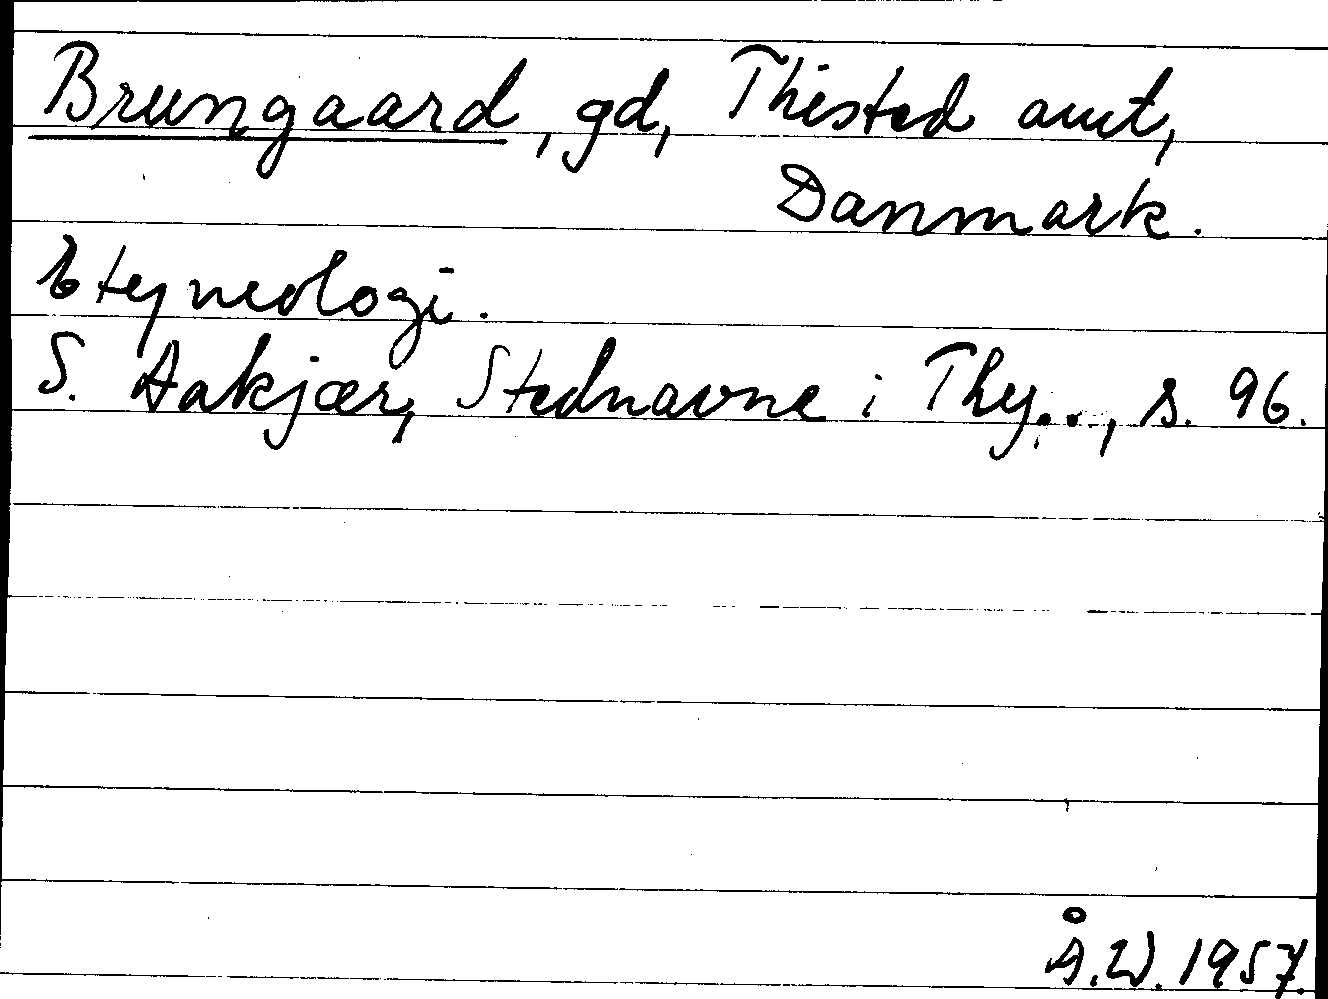 Brungaard, gd, Thisted amt,
Danmark.
Etymologi.
S. Aakjær, Stednavne i Thy..., s. 96.
Å.W. 1957.